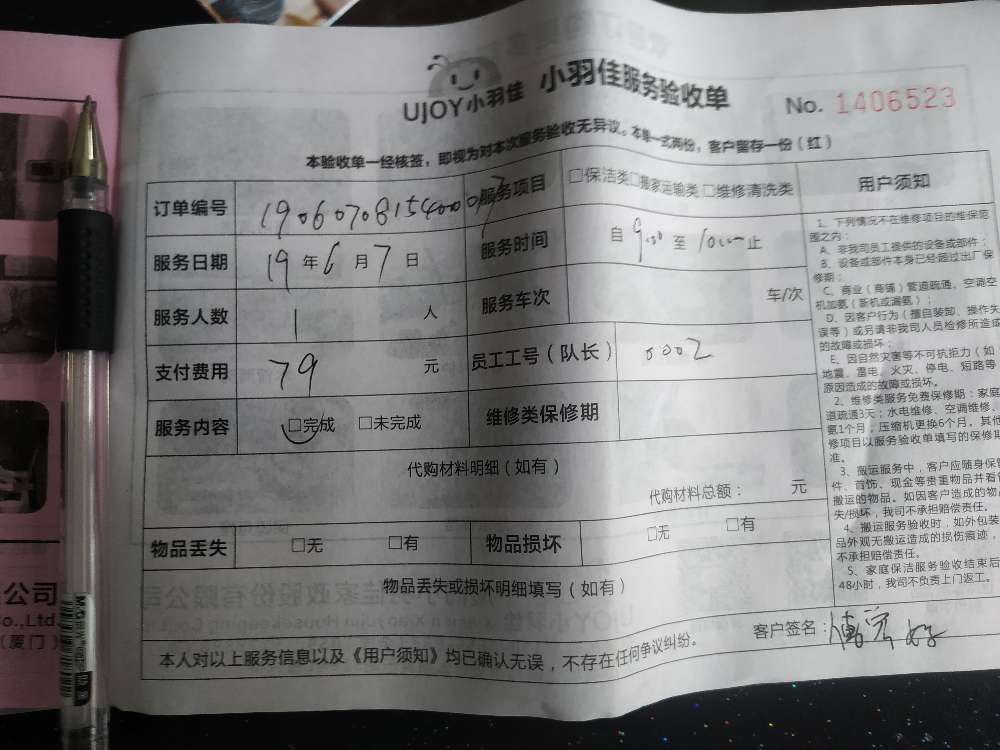 UJOY小羽佳 小羽佳服务验收单 No. 1406523
本验收单一经核签，即视为对本次服务验收无异议。本单一式两份，客户留存一份（红）
订单编号 190607081540007 服务项目 □保洁类□搬家运输类 □维修清洗类
服务日期 19 年 6 月 7 日 服务时间 自 9:00 至 10:00 止
服务人数 1 人 服务车次 车/次
支付费用 79 元 员工工号（队长） 0002
服务内容 □完成 □未完成 维修类保修期
代购材料明细（如有）
代购材料总额： 元
物品丢失 □无 □有 物品损坏 □无 □有
物品丢失或损坏明细填写（如有）
本人对以上服务信息以及《用户须知》均已确认无误，不存在任何争议纠纷。 客户签名：
用户须知
1、下列情况不在维修项目的维保范
围之内：
A、非我司员工提供的设备或部件；
B、设备或部件本身已经超过出厂保
修期；
C、商业（商铺）管道疏通，空调空
机加氨（新机或漏氨）；
D、因客户行为（擅自装卸、操作失
误等）或另请非我司人员检修所造成
的故障或损坏；
E、因自然灾害等不可抗拒力（如
地震、雷电、火灾、停电、短路等
原因造成的故障或损坏。
2、维修类服务免费保修期：家庭
道疏通3天；水电维修、空调维修、
氨1个月；压缩机更换6个月。其他
修项目以服务验收单填写的保修期
准。
3、搬运服务中，客户应随身保管
件、首饰、现金等贵重物品并看管
搬运的物品。如因客户造成的物品
失/损坏，我司不承担赔偿责任。
4、搬运服务验收时，如外包装
品外观无搬运造成的损伤痕迹，
不承担赔偿责任。
5、家庭保洁服务验收结束后
48小时，我司不负责上门返工。
公司
o.,Ltd
（厦门）
M&G